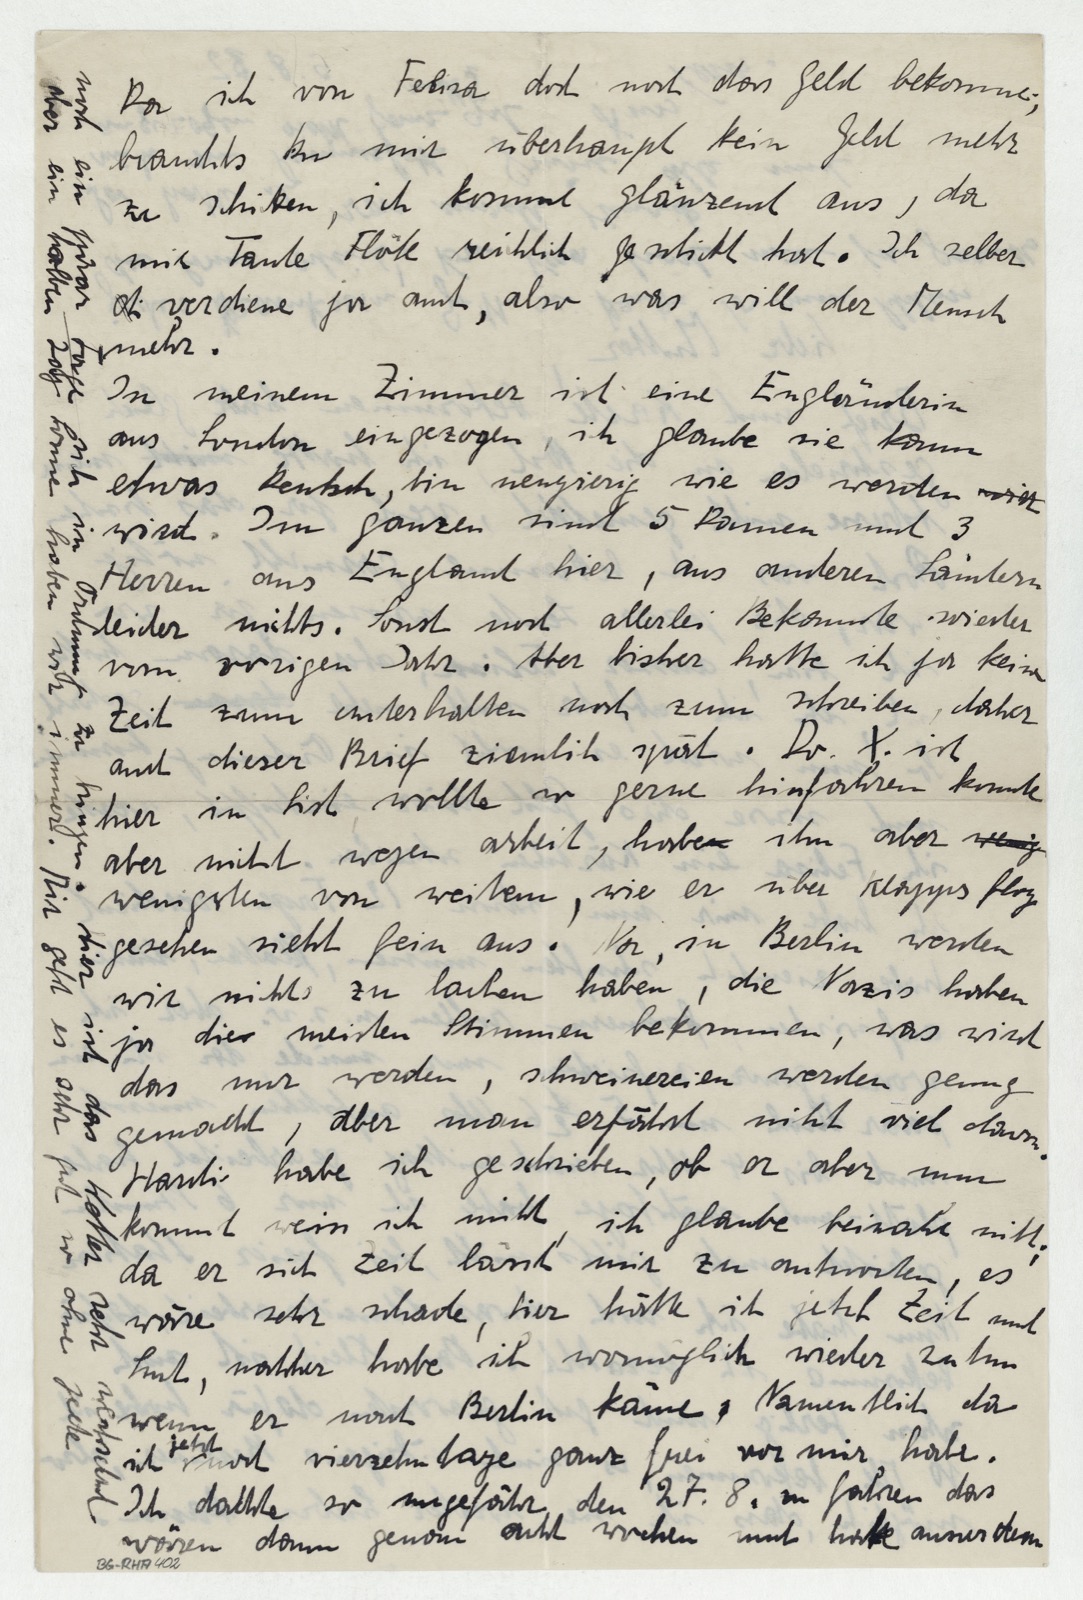 Da ich von Felixa doch noch das Geld bekomme,
brauchts Du mir überhaupt kein Geld mehr
zu schiken, ich komme glänzend aus, da
mir Tante Flöte reichlich geschickt hat. Ich selber
verdiene ja auch, also was will der Mensch
mehr.
In meinem Zimmer ist eine Engländerin
aus London eingezogen, ich glaube sie kann
etwas Deutsch, bin neugierig wie es werden wird
wird. Im ganzen sind 5 Damen und 3
Herren aus England hier, aus anderen Ländern
leider nichts. Sonst noch allerlei Bekannte wieder
vom vorigen Jahr. Aber bisher hatte ich ja keine
Zeit zum unterhalten noch zum schreiben, daher
auch dieser Brief ziemlich spät. Do. X. ist
hier in List, wollte so gerne hinfahren konnte
aber nicht wegen arbeit, habe ihn aber wenig
wenigsten von weitem, wie er über Klapps flog
gesehen sieht fein aus. Na, in Berlin werden
wir nichts zu lachen haben, die Nazis haben
ja die meisten Stimmen bekommen, was wird
das nur werden, schweinereien werden genug
gemacht, aber man erfährt nicht viel davon.
Hardi habe ich geschrieben, ob er aber nun
kommt weiss ich nicht, ich glaube beinahe nicht,
da er sich Zeit lässt mir zu antworten, es
wäre sehr schade, hier hätte ich jetzt Zeit und
Lust, nachher habe ich womöglich wieder zu tun
wenn er nach Berlin käme, Namentlich da
ich jetzt noch vierzehn tage ganz frei vor mir habe.
Ich dachte so ungefähr den 27. 8. zu fahren das
wären dann genau acht wochen und hatte ausserdem
noch ein paar Tage mich in Ordnung zu bringen. Hier ist das Wetter sehr wechselnd
aber ein halben Tag Sonne haben wir immer. Mir geht es sehr gut so ohne jede
BG-RHA 402